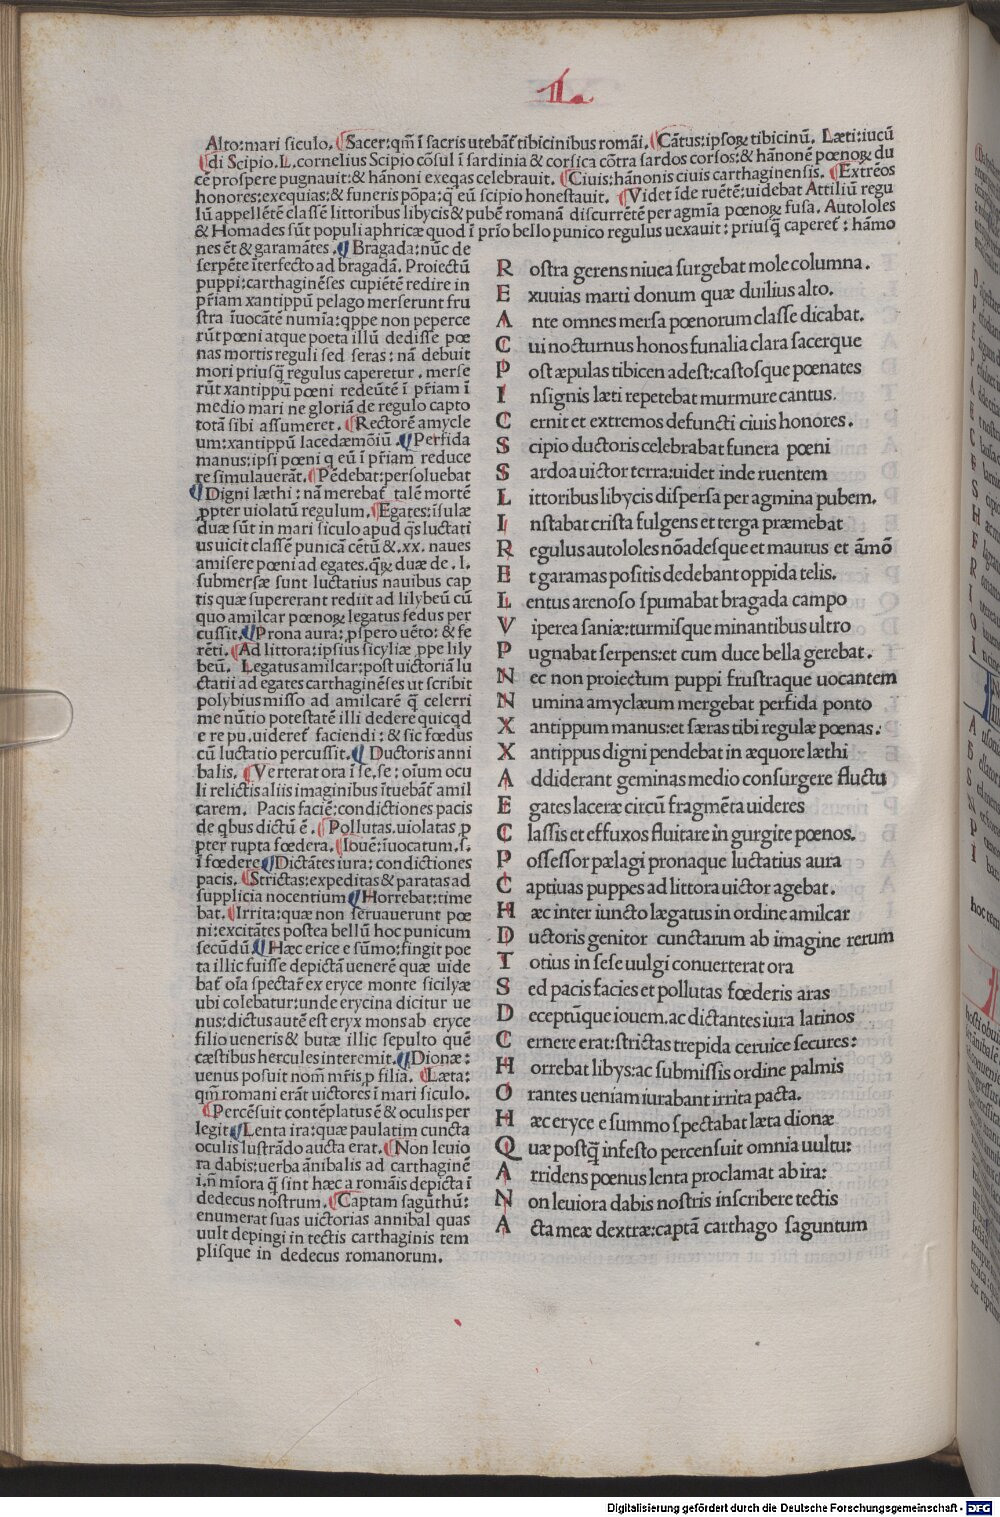 L.
Alto:mari siculo. Sacer:qm̄ ī sacris utebāt tibicinibus romāi. Cātus:ipsoꝝ tibicinū. Læti:iucū
di Scipio. L. cornelius Scipio cōsul ī sardinia & corsica cōtra sardos corsos:& hānonē pœnoꝝ du
cē prospere pugnauit:& hānoni exeqas celebrauit. Ciuis:hānonis ciuis carthaginensis. Extrēos
honores:exequias:& funeris pōpa:q̄ eū scipio honestauit. Videt īde ruētē:uidebat Attiliū regu
lū appellētē classē littoribus libycis & pubē romanā discurrētē per agmīa pœnoꝝ fusa. Autololes
& Homades sūt populi aphricæ quod ī prīo bello punico regulus uexauit: priusq̄ caperet̄: hāmo
nes ēt & garamātes. Bragada:nūc de
serpēte iterfecto ad bragadā. Proiectū
puppi:carthaginēses cupiētē redire in
pr̄iam xantippū pelago merserunt fru
stra īuocātē numīa:qppe non peperce
rūt pœni atque poeta illū dedisse pœ
nas mortis reguli sed seras: nā debuit
mori priusq̄ regulus caperetur. merse
rūt xantippū pœni redeūtē ī pr̄iam ī
medio mari ne gloriā de regulo capto
totā sibi assumeret. Rectorē amycle
um:xantippū lacedæmōiū. Perfida
manus:ipsi pœni q eū ī pr̄iam reduce
re simulauerāt. Pēdebat:persoluebat
Digni læthi: nā merebat̄ talē mortē
ꝓpter uiolatū regulum. Egates:isulæ
duæ sūt in mari siculo apud q̄s luctati
us uicit classē punicā cētū &.xx. naues
amisere pœni ad egates.q̄ꝝ duæ de.l.
submersæ sunt luctatius nauibus cap
tis quæ supererant rediit ad lilybeū cū
quo amilcar pœnoꝝ legatus fedus per
cussit. Prona aura: ꝓspero uēto: & fe
rēti. Ad littora:ipsius sicyliæ ꝓpe lily
beū. Legatus amilcar:post uictoriā lu
ctatii ad egates carthaginēses ut scribit
polybius misso ad amilcarē q̄ celerri
me nūtio potestatē illi dedere quicqd
e re pu.uideret̄ faciendi: & sic fœdus
cū luctatio percussit. Ductoris anni
balis. Verterat ora ī se.se: oīum ocu
li relictis aliis imaginibus ītuebāt̄ amil
carem. Pacis faciē:condictiones pacis
de qbus dictū ē. Pollutas.uiolatas ꝓ
pter rupta fœdera. Iouē:īuocatum.s.
ī fœdere Dictātes iura: condictiones
pacis. Strictas:expeditas & paratas ad
supplicia nocentium Horrebat:time
bat. Irrita:quæ non seruauerunt pœ
ni:excitātes postea bellū hoc punicum
secūdū. Hæc erice e sūmo:fingit poe
ta illic fuisse depictā uenerē quæ uide
bat̄ oīa spectar̄ ex eryce monte sicilyæ
ubi colebatur:unde erycina dicitur ue
nus:dictus autē est eryx mons ab eryce
filio ueneris & butæ illic sepulto quē
cæstibus hercules interemit. Dionæ:
uenus posuit nom̄ mr̄is ꝓ filia. Læta:
qm̄ romani erāt uictores ī mari siculo.
Percēsuit contēplatus ē & oculis per
legit Lenta ira:quæ paulatim cuncta
oculis lustrādo aucta erat. Non leuio
ra dabis:uerba ānibalis ad carthaginē
i.n̄ mīora q̄ sint hæc a romāis depicta ī
dedecus nostrum. Captam sagūthū:
enumerat suas uictorias annibal quas
uult depingi in tectis carthaginis tem
plisque in dedecus romanorum.
R ostra gerens niuea surgebat mole columna.
E xuuias marti donum quæ duilius alto.
A nte omnes mersa pœnorum classe dicabat.
C ui nocturnus honos funalia clara sacerque
P ost æpulas tibicen adest:castosque pœnates
I nsignis læti repetebat murmure cantus.
C ernit et extremos defuncti ciuis honores.
S cipio ductoris celebrabat funera pœni
S ardoa uictor terra:uidet inde ruentem
L ittoribus libycis dispersa per agmina pubem.
I nstabat crista fulgens et terga præmebat
R egulus autololes nōadesque et maurus et āmō
E t garamas positis dedebant oppida telis.
L entus arenoso spumabat bragada campo
V iperea saniæ:turmisque minantibus ultro
P ugnabat serpens:et cum duce bella gerebat.
N ec non proiectum puppi frustraque uocantem
N umina amyclæum mergebat perfida ponto
X antippum manus:et særas tibi regulæ pœnas.
X antippus digni pendebat in æquore læthi
A ddiderant geminas medio consurgere fluctu
E gates laceræ circū fragmēta uideres
C lassis et effuxos fluitare in gurgite pœnos.
P ossessor pælagi pronaque luctatius aura
C aptiuas puppes ad littora uictor agebat.
H æc inter iuncto lægatus in ordine amilcar
D uctoris genitor cunctarum ab imagine rerum
T otius in sese uulgi conuerterat ora
S ed pacis facies et pollutas fœderis aras
D eceptūque iouem.ac dictantes iura latinos
C ernere erat:strictas trepida ceruice secures:
H orrebat libys:ac submissis ordine palmis
O rantes ueniam iurabant irrita pacta.
H æc eryce e summo spectabat læta dionæ
Q uæ postq̄ infesto percensuit omnia uultu:
A rridens pœnus lenta proclamat ab ira:
N on leuiora dabis nostris inscribere tectis
A cta meæ dextræ:captā carthago saguntum
Digitalisierung gefördert durch die Deutsche Forschungsgemeinschaft - DFG